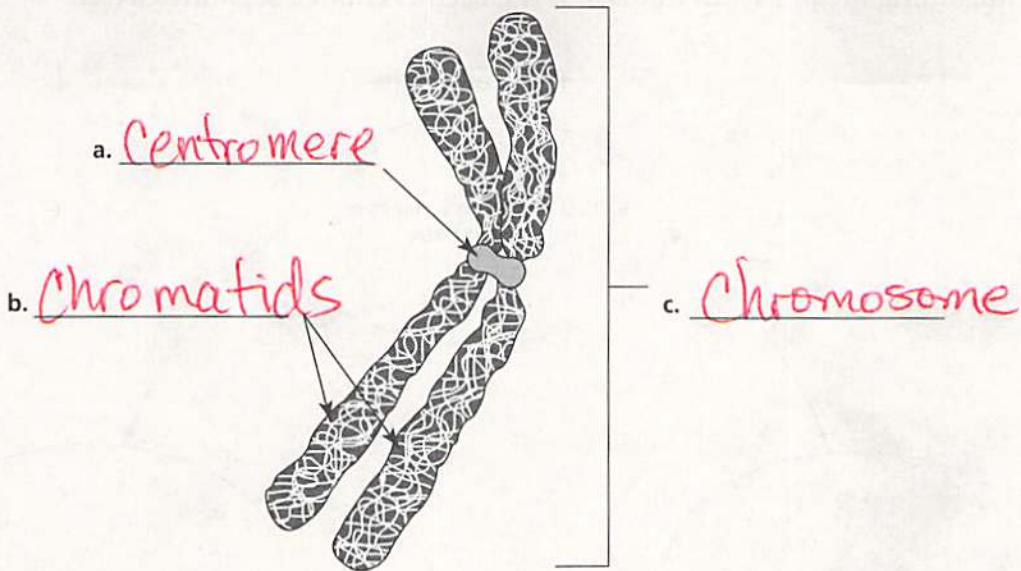 a. Centromere
b. Chromatids
c. Chromosome